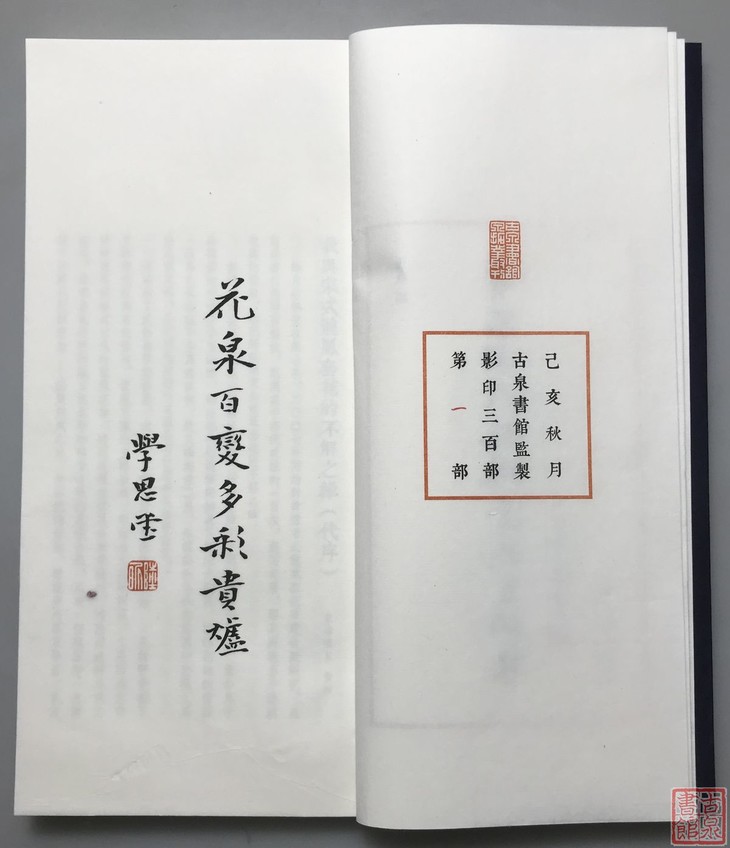 古泉書館
己亥秋月
古泉書館監製
影印三百部
第一部
花泉百變多彩貴爐
學思
古泉書館